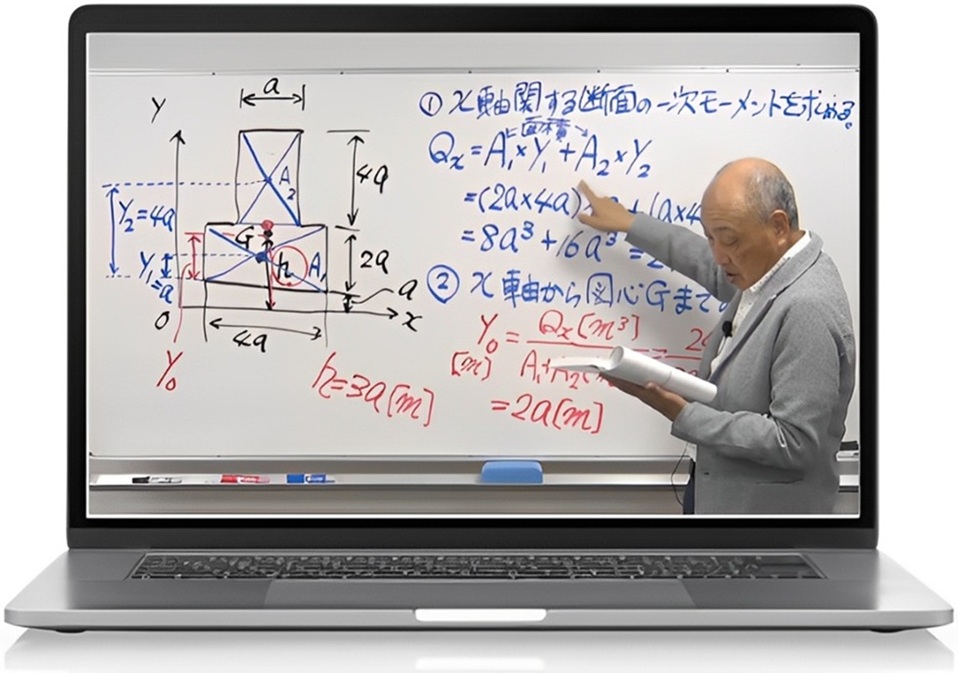 Y
a
4a
A₂
Y₂=4a
G
h
A₁
2a
Y₁=a
a
O
x
4a
Y₀
h=3a[m]
① x軸関する断面の一次モーメントを求める。
面積
Qx=A₁×Y₁+A₂×Y₂
=(2a×4a)
=8a³+16a³=2
② x軸から図心Gまで
Y₀=Qx[m³]
[m]
=2a[m]